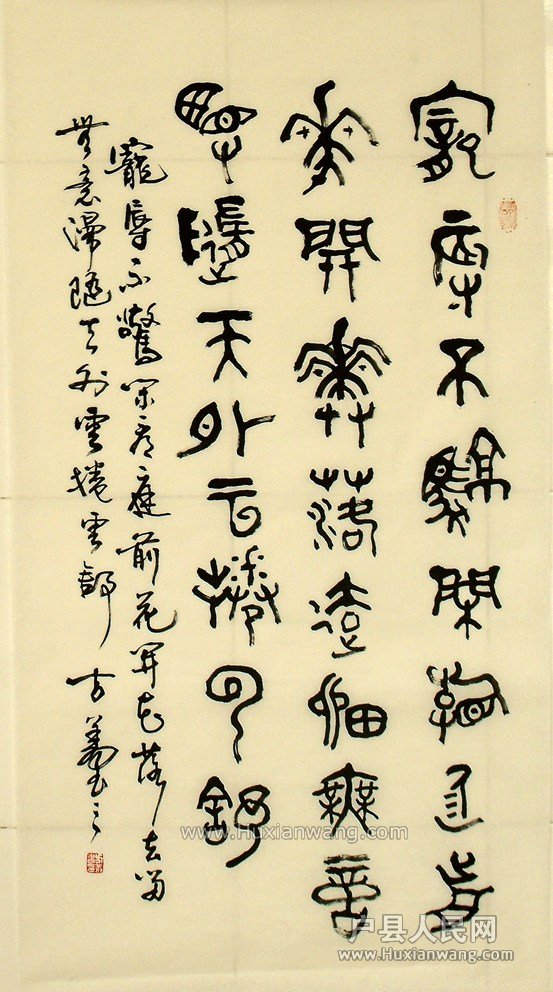 寵辱不驚閑看庭前
花開花落去留無意
漫隨天外云捲云舒
寵辱不驚閑看庭前花開花落去留
無意漫隨天外雲捲雲舒
www.Huxianwang.com
户县人民网
www.Huxianwang.com